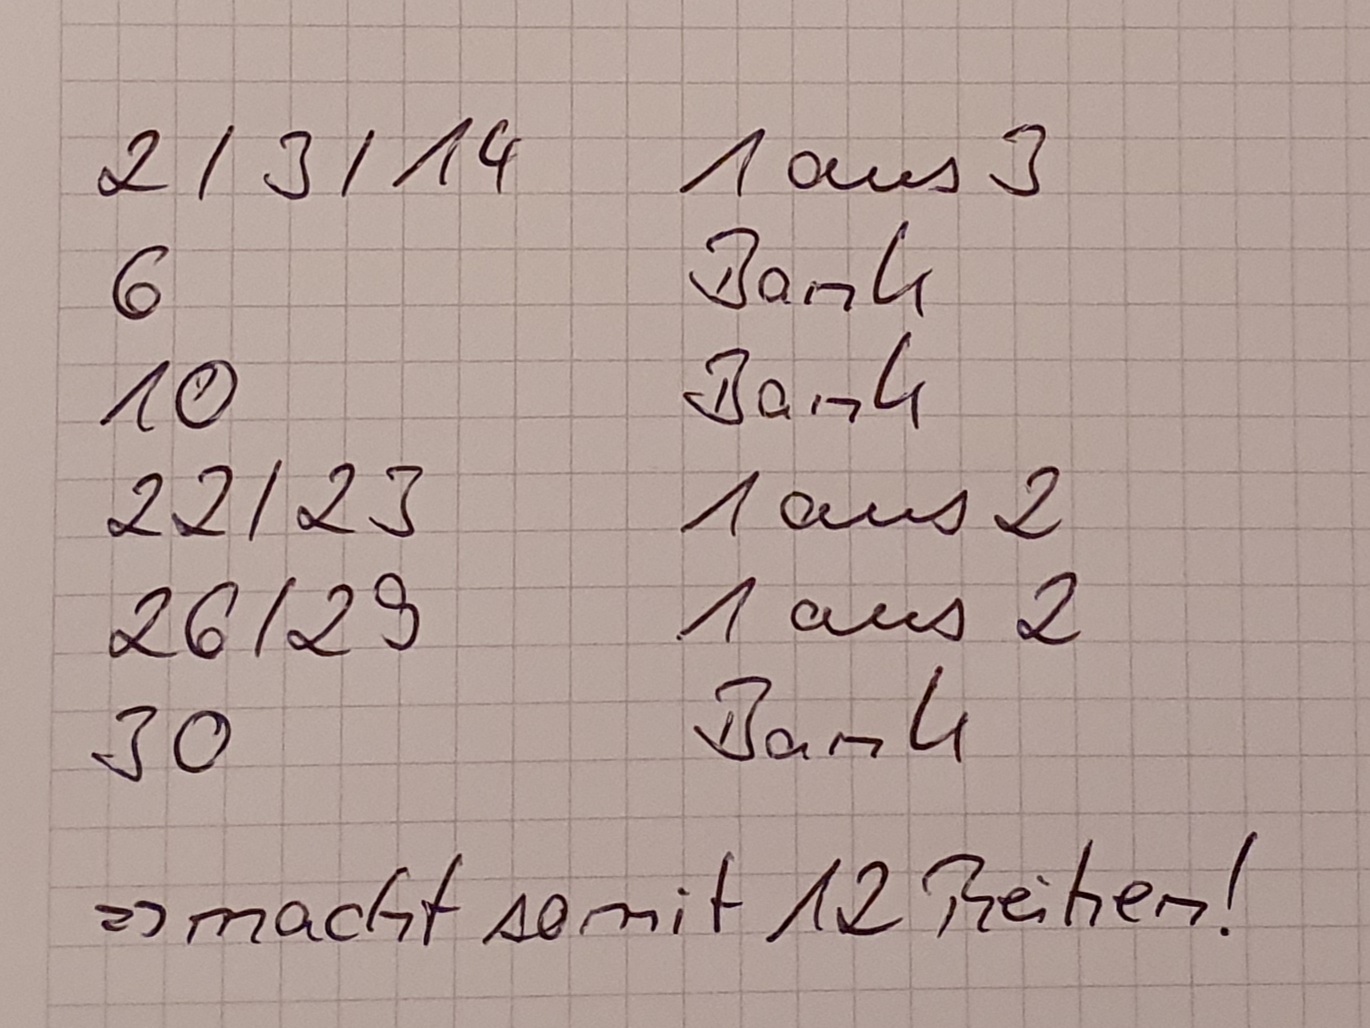 2 / 3 / 14 1 aus 3
6 Bank
10 Bank
22 / 23 1 aus 2
26 / 29 1 aus 2
30 Bank
=> macht somit 12 Reihen!